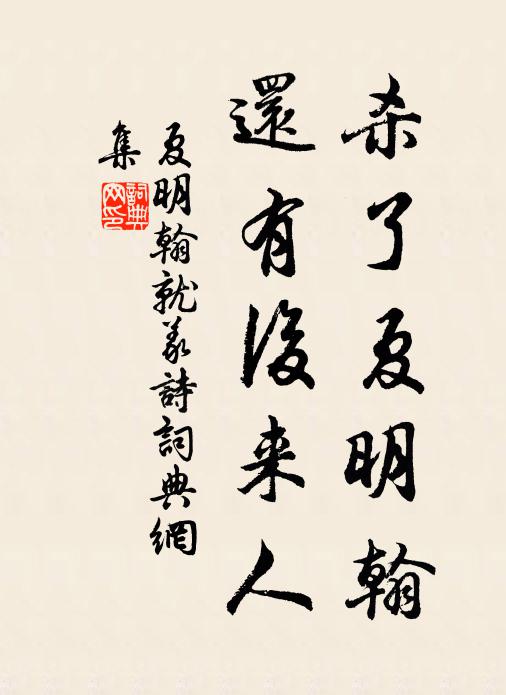 杀了夏明翰
還有後来人
夏明翰就義詩詞典網
集
詞典网印